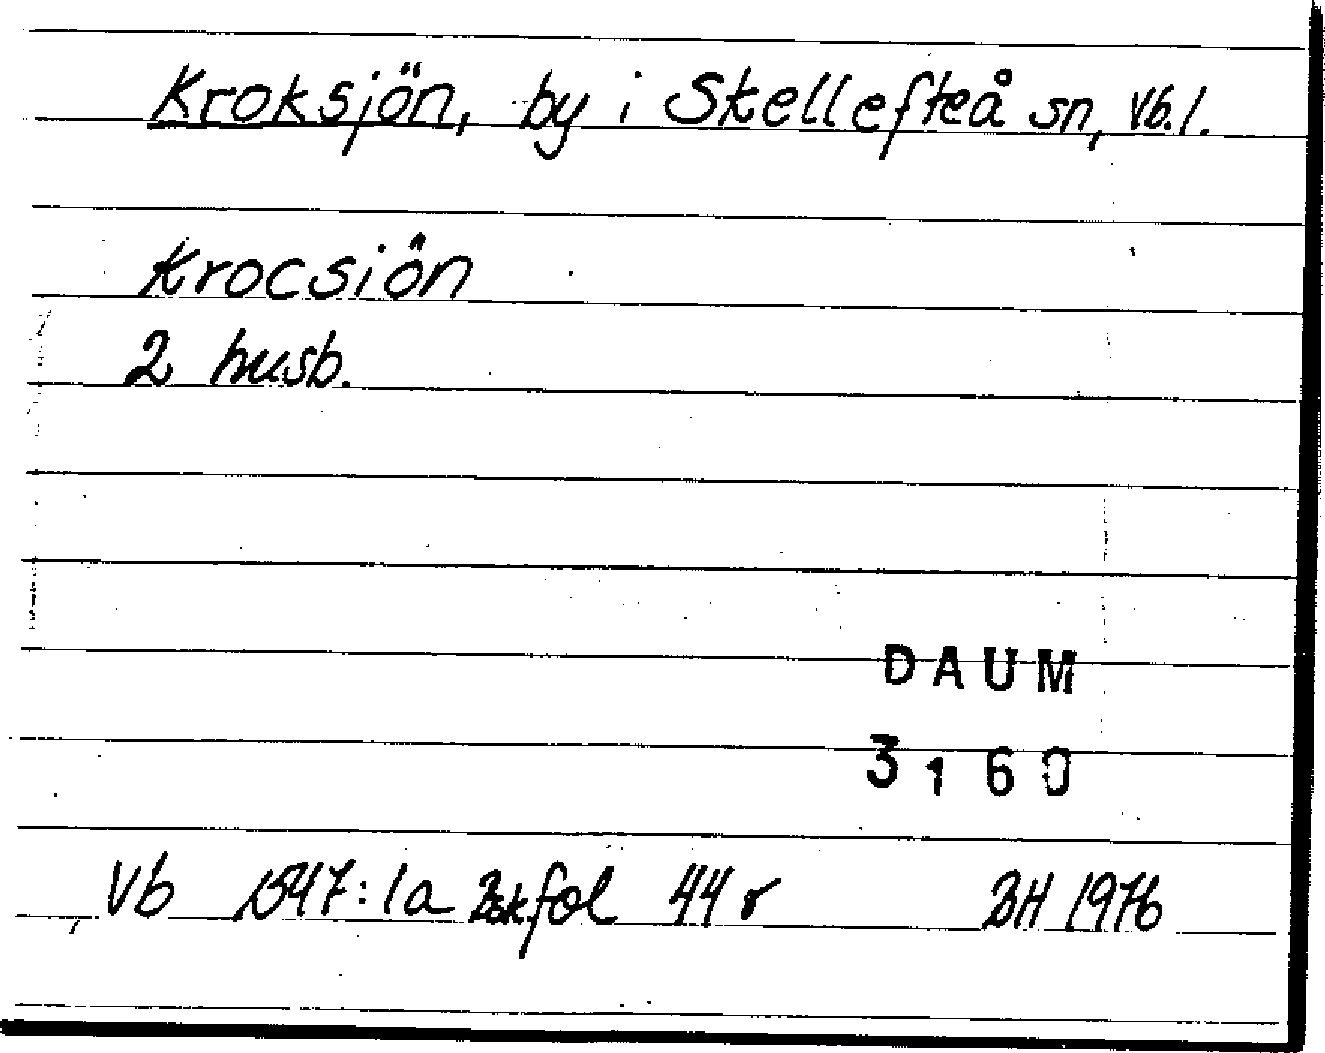 Kroksjön, by i Skellefteå sn, Vb.l.
Krocsiön
2 husb.
DAUM
3160
Vb 1547:1a Bsk fol 44 r BH 1976